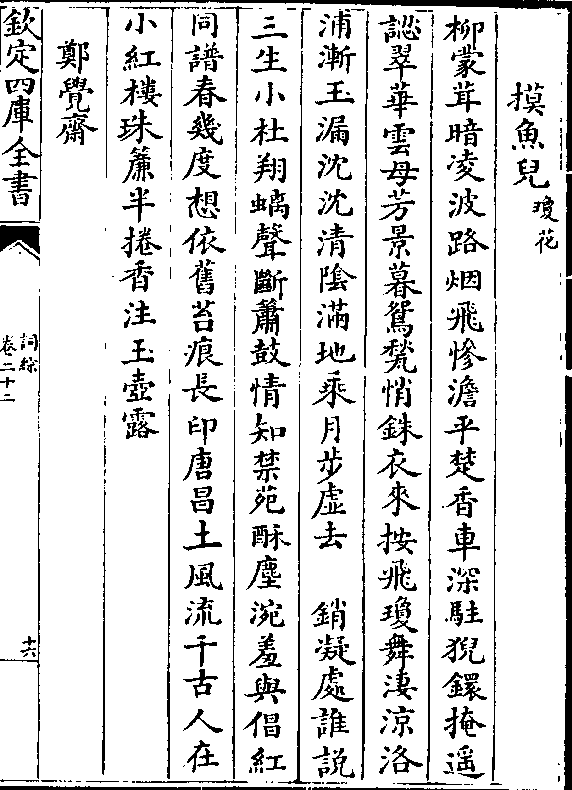 摸魚兒 瓊花
柳蒙茸暗凌波路烟飛慘澹平楚香車深駐猊鐶掩遥
認翠華雲母芳景暮鴛甃悄銖衣來按飛瓊舞淒涼洛
浦漸玉漏沈沈清陰滿地乘月步虛去　銷凝處誰説
三生小杜翔螭聲斷蕭鼓情知禁苑酥塵涴羞與倡紅
同譜春幾度想依舊苔痕長印唐昌土風流千古人在
小紅樓珠簾半捲香注玉壺露
鄭覺齋
欽定四庫全書
詞綜
卷二十二
十六